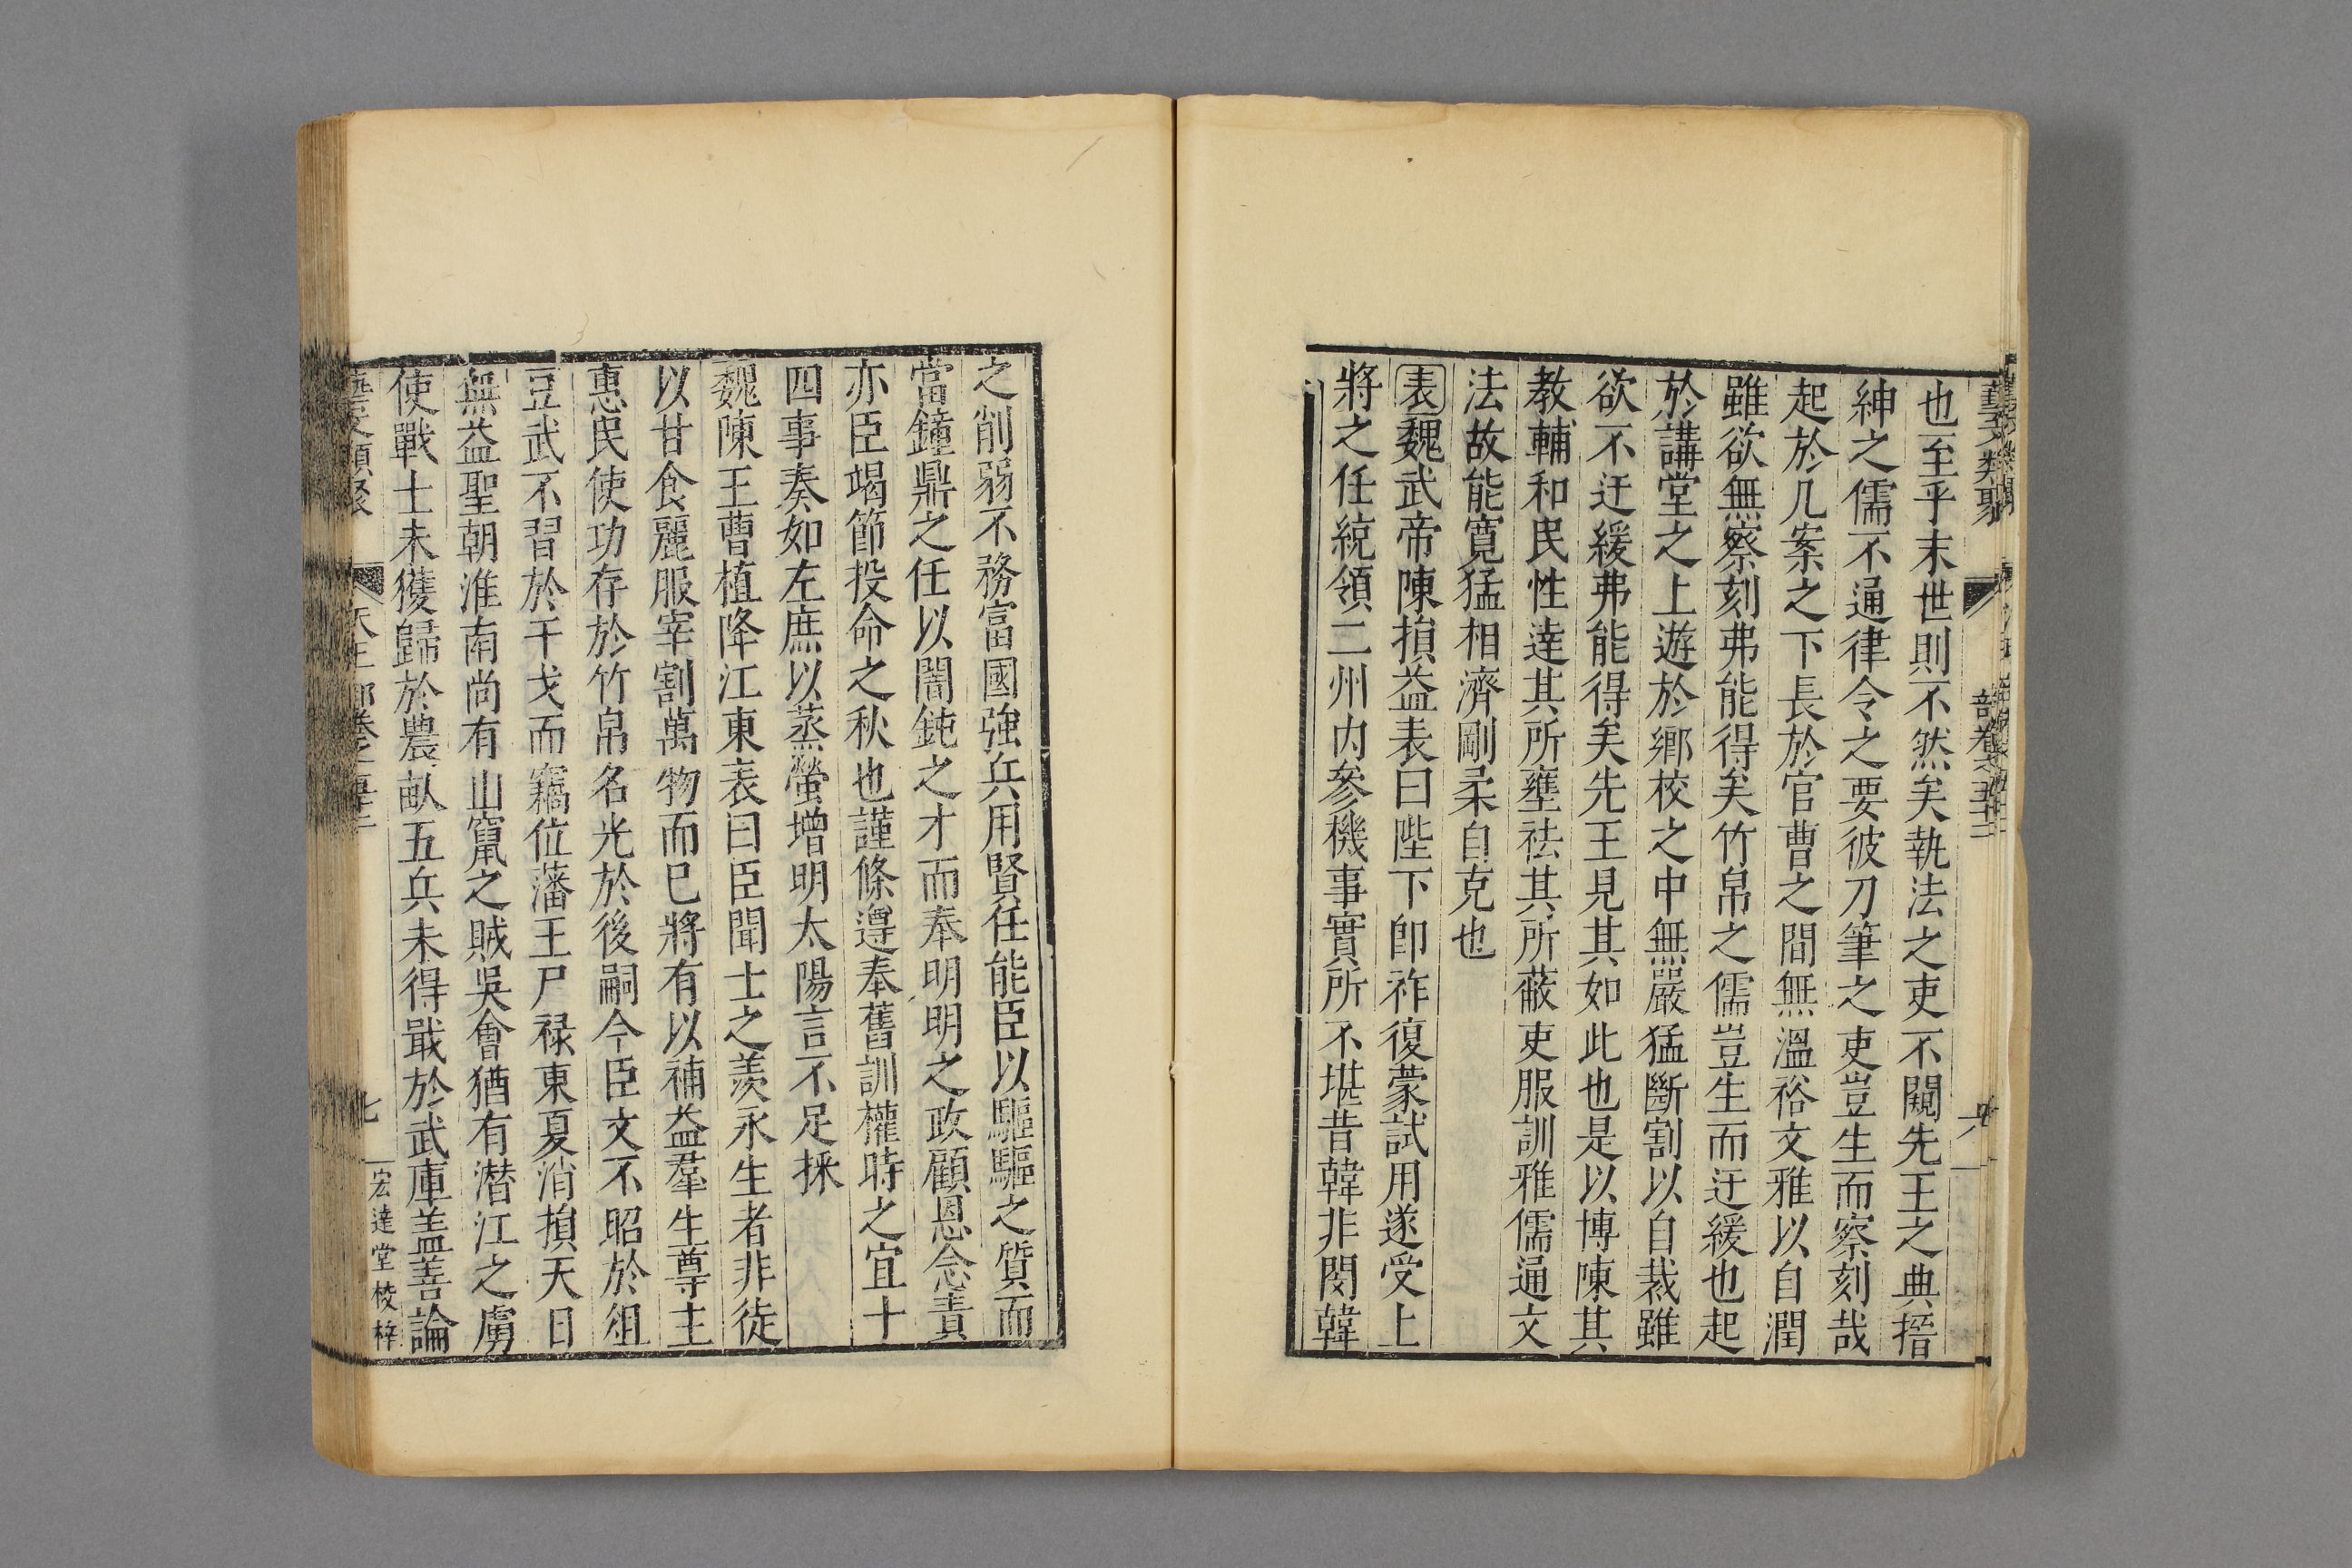 藝文類聚
部卷之五十二
六
也至乎末世則不然矣執法之吏不闚先王之典搢
紳之儒不通律令之要彼刀筆之吏豈生而察刻哉
起於几案之下長於官曹之間無溫裕文雅以自潤
雖欲無察刻弗能得矣竹帛之儒豈生而迂緩也起
於講堂之上遊於鄉校之中無嚴猛斷割以自裁雖
欲不迂緩弗能得矣先王見其如此也是以博陳其
教輔和民性達其所壅祛其所蔽吏服訓雅儒通文
法故能寬猛相濟剛柔自克也
表魏武帝陳損益表曰陛下卽祚復蒙試用遂受上
將之任統領二州内參機事實所不堪昔韓非閔韓
之削弱不務富國強兵用賢任能臣以驅驅之質而
當鐘鼎之任以闇鈍之才而奉明明之政顧恩念責
亦臣竭節投命之秋也謹條遵奉舊訓權時之宜十
四事奏如左庶以蒸螢增明太陽言不足採
魏陳王曹植降江東表曰臣聞士之羨永生者非徒
以甘食麗服宰割萬物而已將有以補益羣生尊主
惠民使功存於竹帛名光於後嗣今臣文不昭於俎
豆武不習於干戈而竊位藩王尸禄東夏消損天日
無益聖朝淮南尚有山竄之賊吳會猶有潜江之虜
使戰士未獲歸於農畝五兵未得戢於武庫盖善論
七
宏達堂校梓